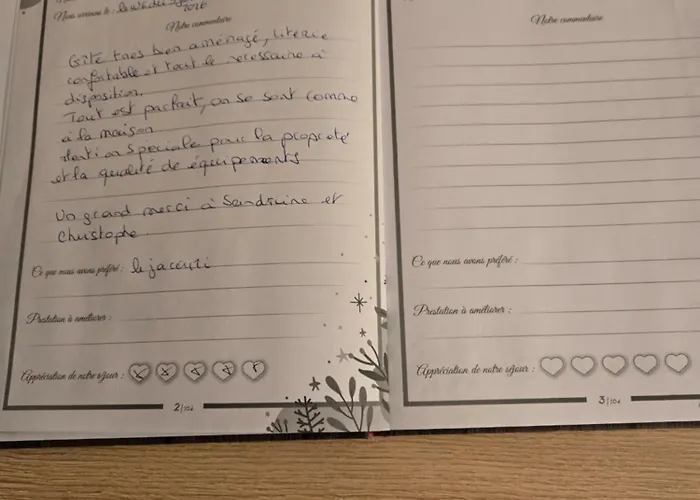 Nous venons le :
2026
Notre commentaire
Gîte tres bien aménagé, literie
confortable et tout le necessaire à
disposition.
Tout est parfait, on se sent comme
à la maison
special pour la propreté
et la qualité de équipements
Un grand merci à Sandrine et
Christophe.
Ce que nous avons préféré : le jacuzzi
Prestation à améliorer :
Appréciation de notre séjour :
2/104
Notre commentaire
Ce que nous avons préféré :
Prestation à améliorer :
Appréciation de notre séjour :
3/104